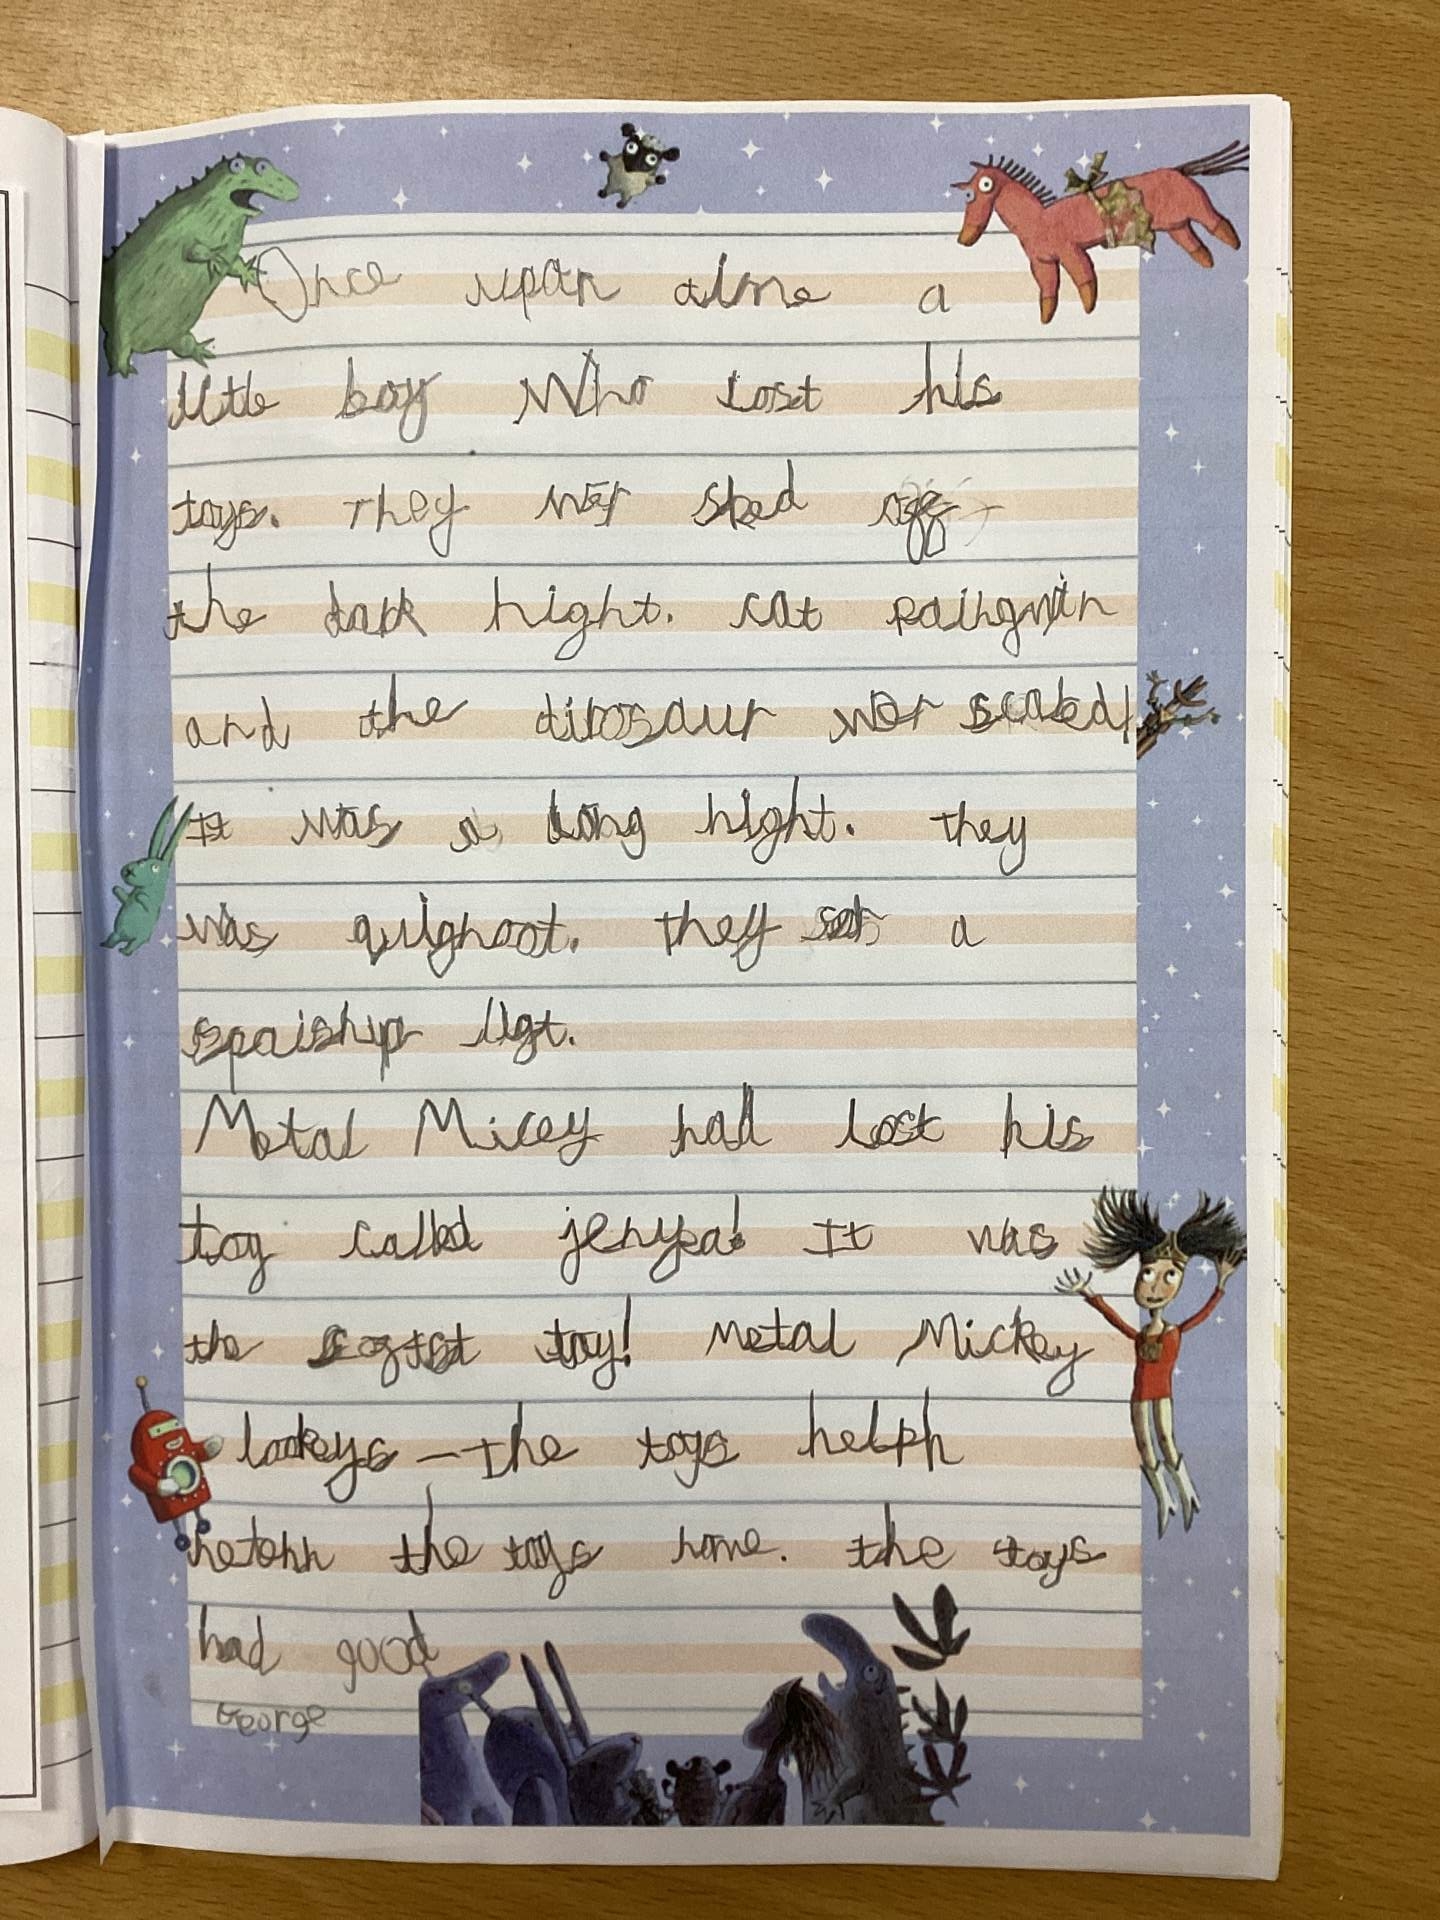 Once upon atime a
little boy Who Lost his
toys. They wer sked off
the dark night. cat paingwin
and the dinosaur wer scaked!
It was a long night. they
was quighoot. they a
spaiship ligt.
Metal Micey had lost his
toy called It was
the toy! Metal Mickey
lookeys – the toys helph
the toys home. the toys
had good
George